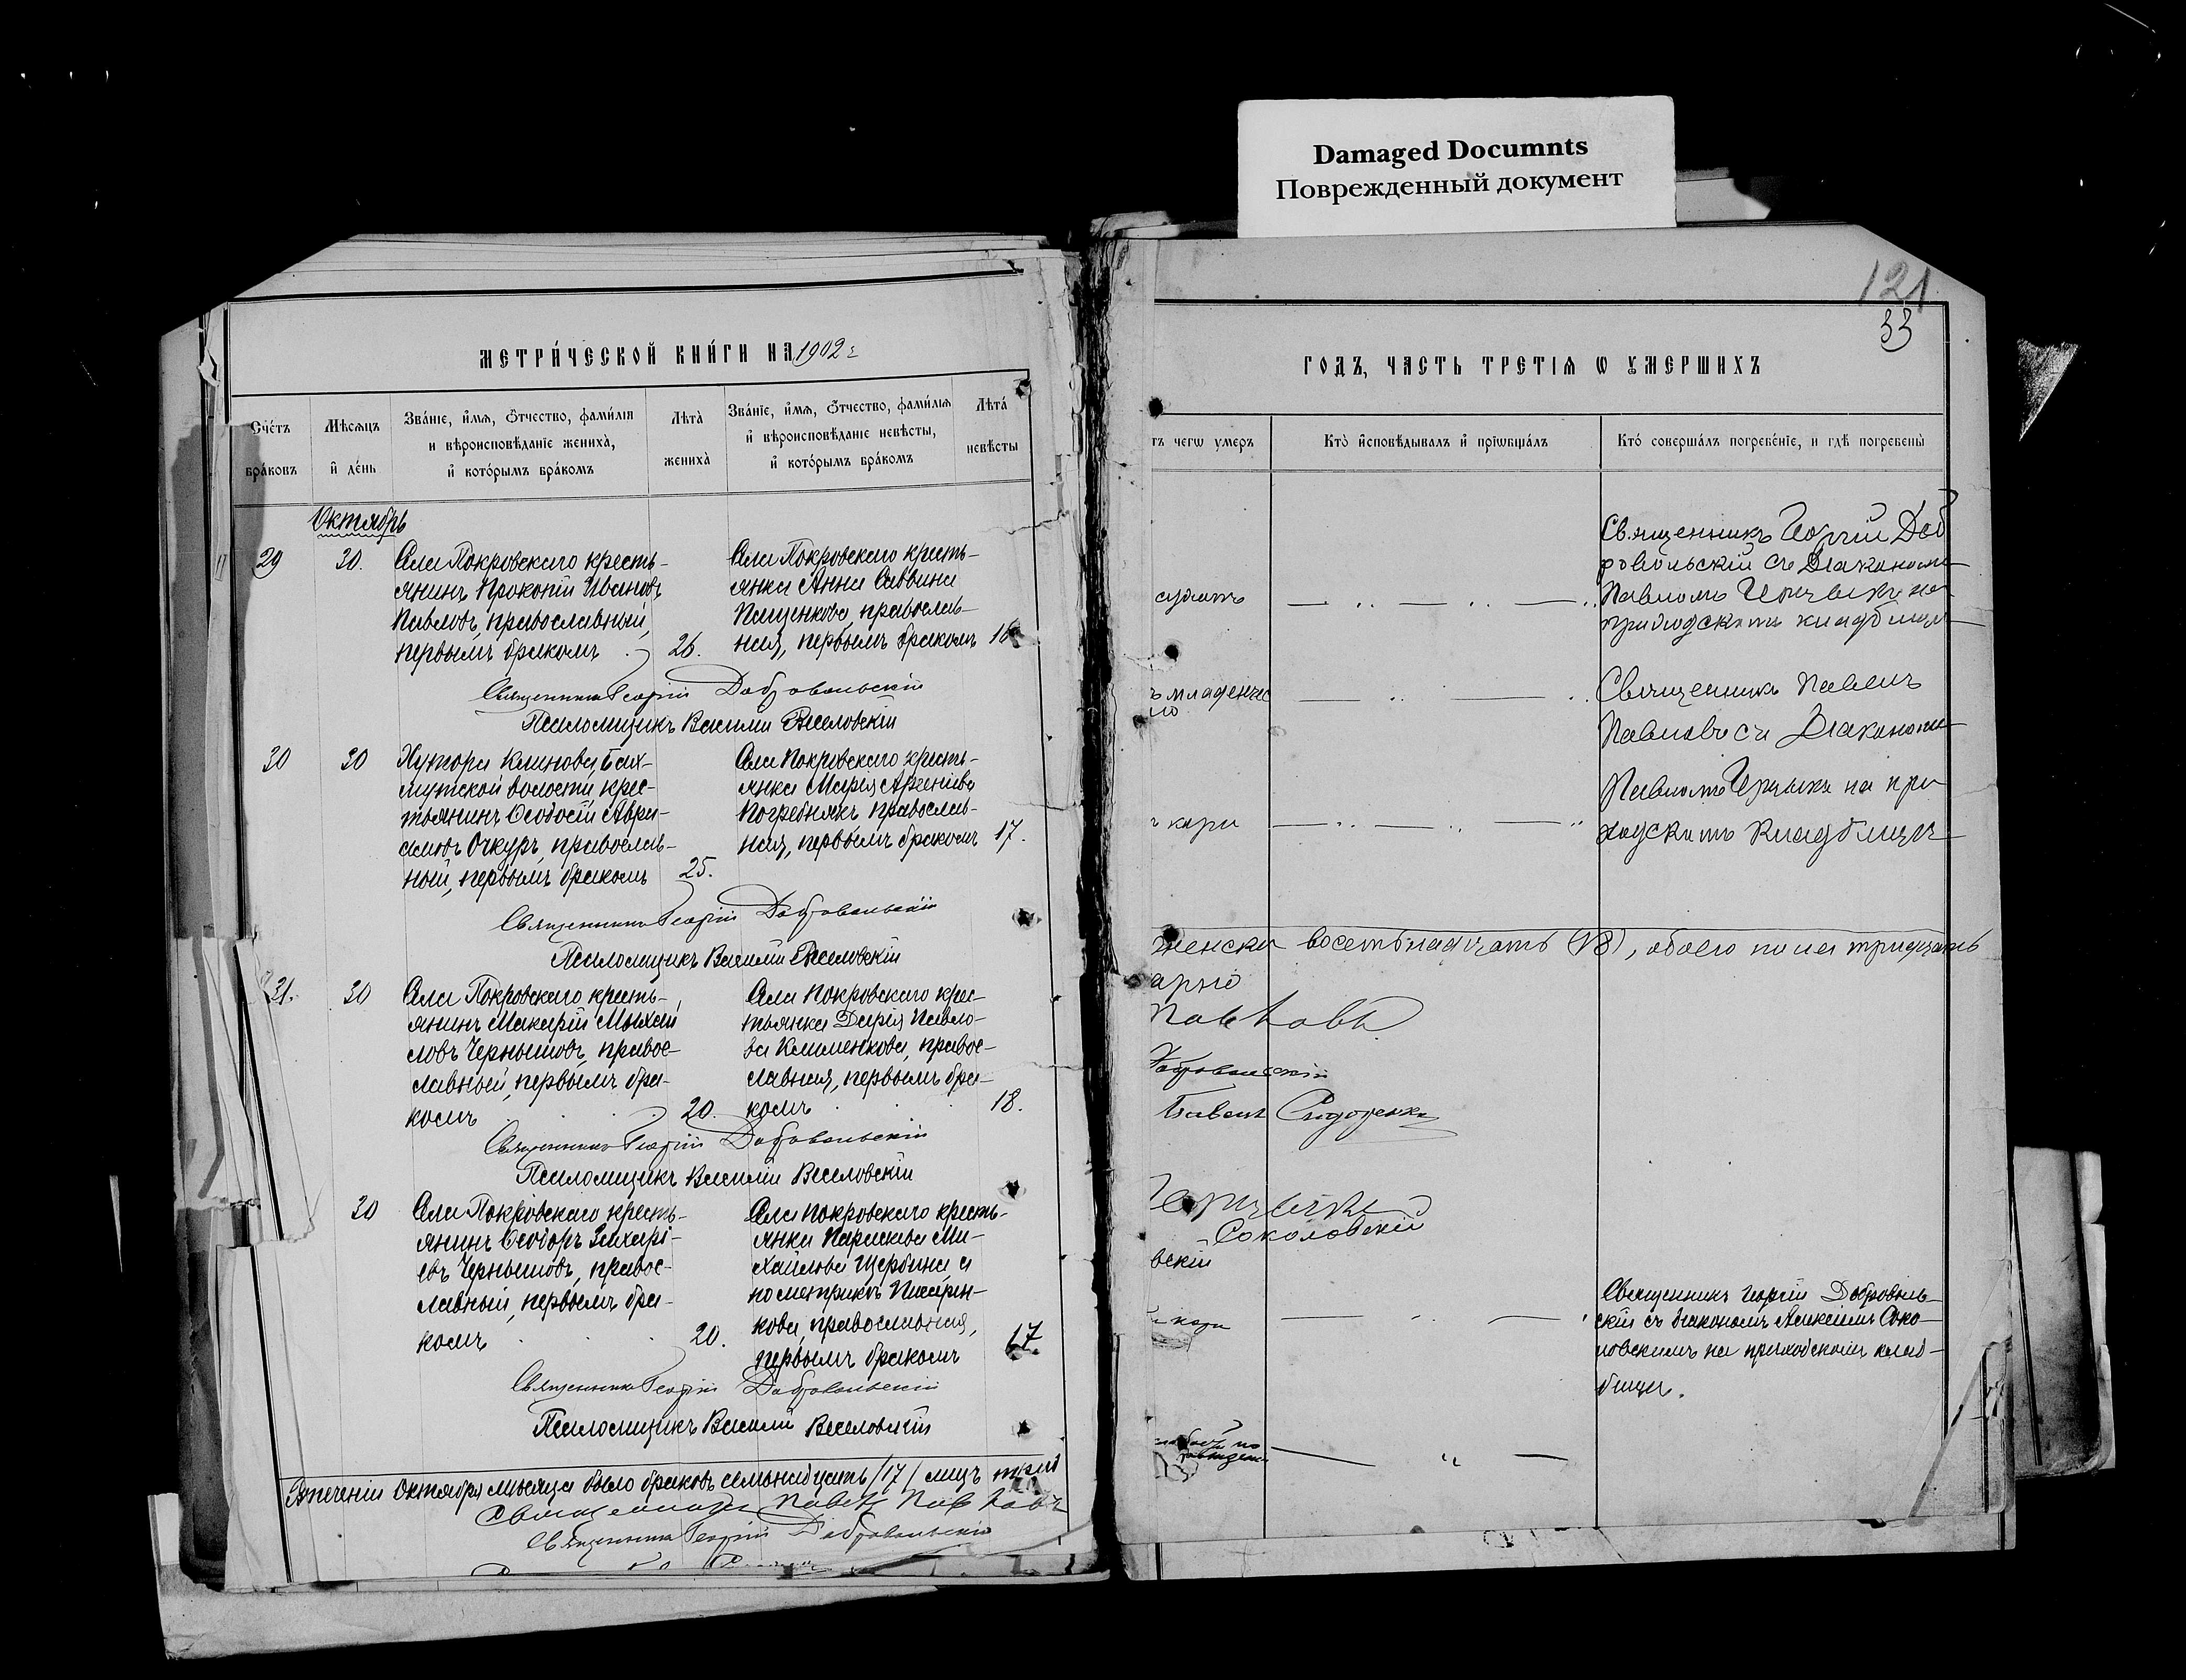 Damaged Documnts
Поврежденный документ
МЕТРИ́ЧЕСКОЙ КНИ́ГИ НА 1902 г
Сче́тъ бра́ковъ
Мѣсяцъ и҆ де́нь
Зва́нїе, и҆́мя, Ѻ҆́тчество, фами́лїя и вѣроисповѣ́данїе женихà, и҆ кото́рымъ бра́комъ
Лѣта̀ женихà
Зва́нїе, и҆́мя, Ѻ҆́тчество, фами́лїя и҆ вѣроисповѣ́данїе невѣ́сты, и҆ кото́рымъ бра́комъ
Лѣта́ невѣ́сты
Октябрь
29
30.
Села Покровскаго кресть-
янинъ Прокопій Ивановъ
Павловъ, православный,
первымъ бракомъ
26.
Села Покровскаго кресть-
янка Анна Саввина
Пащенкова, православ-
ная, первымъ бракомъ
16
Священникъ Георгій Добровольскій
Псаломщикъ Василій Веселовскій
30
30
Хутора Клинова, Бах-
мутской волости, крес-
тьянинъ Ѳеодосій Авра-
амовъ Очкуръ, православ-
ный, первымъ бракомъ
25.
Села Покровскаго кресть-
янка Марія Арсеніева
Погребнякъ, православ-
ная, первымъ бракомъ
17.
Священникъ Георгій Добровольскій
Псаломщикъ Василій Веселовскій
31.
30
Села Покровскаго кресть-
янинъ Макарій Михаи
ловъ Чернышовъ, правос-
лавный, первымъ бра-
комъ
20.
Села Покровскаго крес-
тьянка Дарія Павло-
ва Клименкова, правос-
лавная, первымъ бра-
комъ
18.
Священникъ Георгій Добровольскій
Псаломщикъ Василій Веселовскій
30
Села Покровскаго кресть-
янинъ Ѳеодоръ Захарі-
евъ Чернышовъ, правос-
лавный, первымъ бра-
комъ
20.
Села Покровскаго кресть-
янка Параскева Ми-
хайлова Щербина а
по метрикѣ Писарен-
кова, православная,
первымъ бракомъ
17.
Священникъ Георгій Добровольскій
Псаломщикъ Василій Веселовскій
Втеченіи Октября мѣсяца было браковъ семьнадцать /17/ лицъ
Священникъ Павелъ Павловъ
Священникъ Георгій Добровольскій
121
33
ГОДЪ, ЧАСТЬ ТРЕТІѦ Ѡ ОУМЕРШИХЪ
тъ чегѡ умеръ
Кто̀ и҆сповѣ́дывалъ и҆ прїѡбща́лъ
Кто́ соверша́лъ погребе́нїе, и гдѣ̀ погребены̀
Священникъ Георгій Доб
ровольскій съ Діакономъ
Павломъ на
приходскомъ кладбищѣ
младенчес
Священникъ Павелъ
Павловъ съ Діакономъ
Павломъ на при
ходскомъ кладбищѣ
кори
женска восемьнадцать (18), обоего пола тридцать
Павловъ
Добровольскій
Павелъ Сидоренко
Соколовскій
вскій
кори
Священникъ Георгій Доброволь-
скій съ діакономъ Алексіемъ Соко-
ловскимъ на приходскомъ клад-
бищѣ.